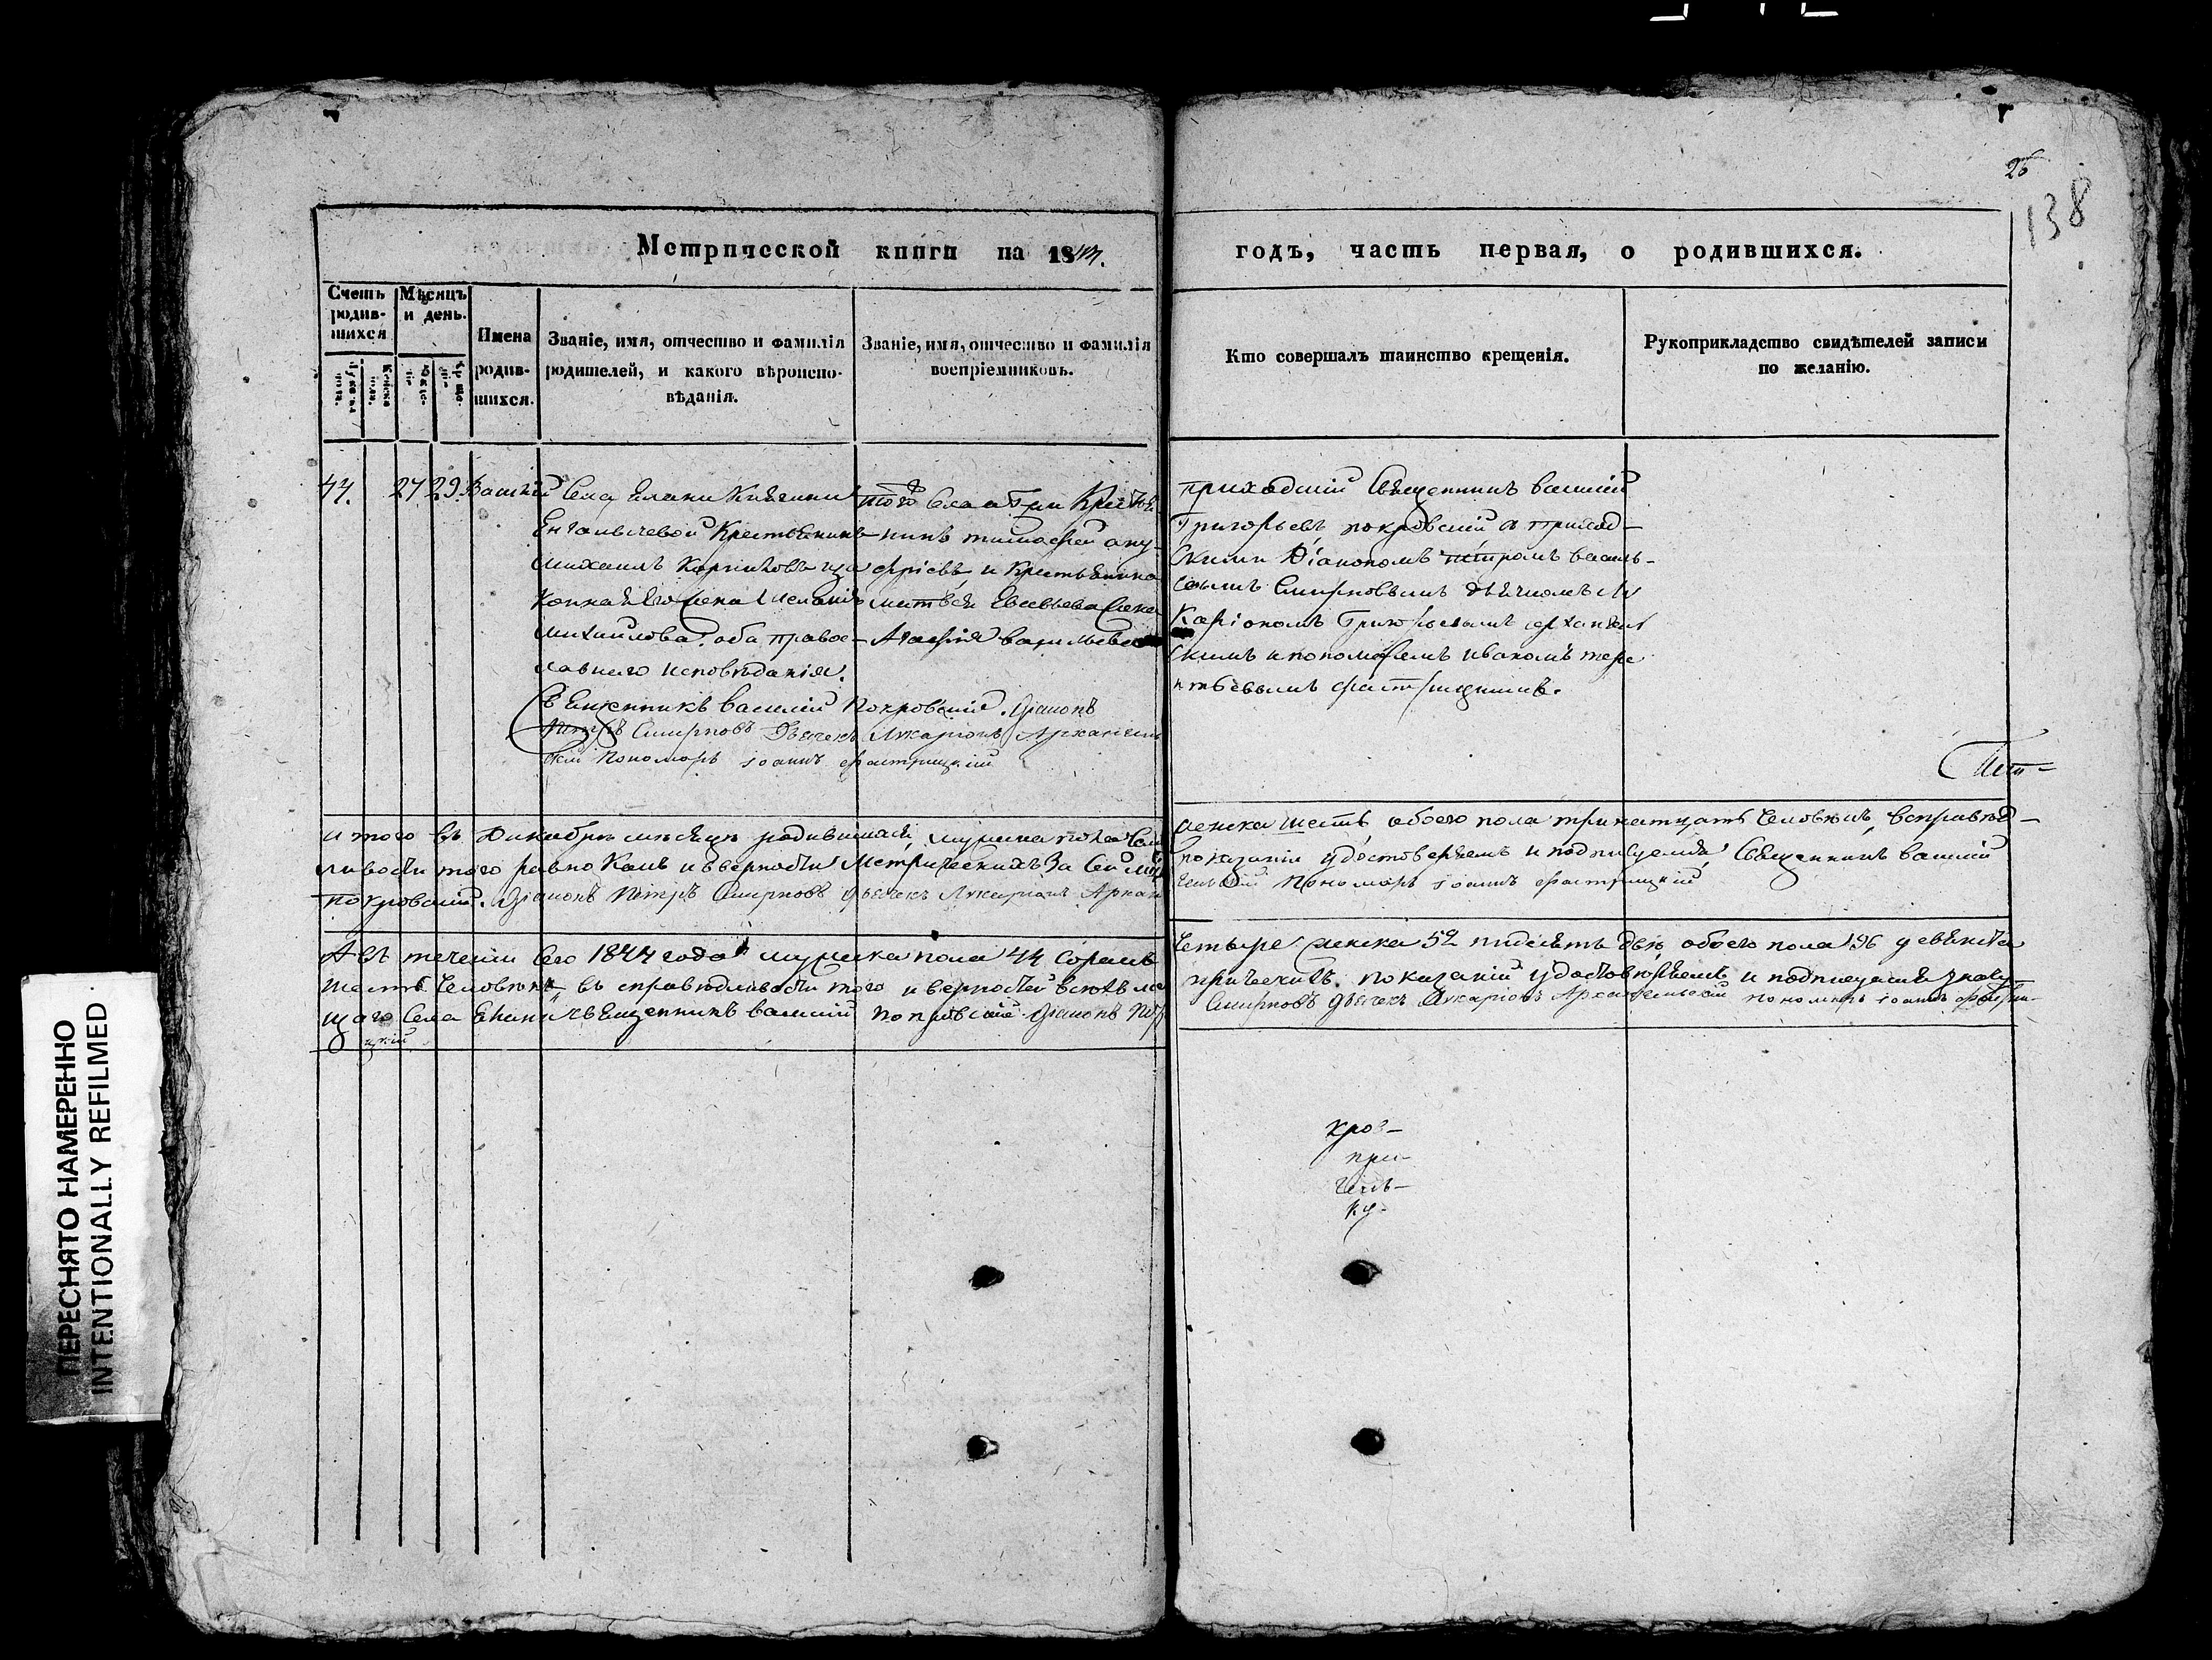 26
138
Метрической книги на 1844.
годъ, часть первая, о родившихся.
Счетъ родив-шихся
Мѣсяцъ и день.
Имена родив-шихся.
Званіе, имя, отчество и фамилія родителей, и какого вѣроиспо-вѣданія.
Званіе, имя, отчество и фамилія воспріемниковъ.
Кто совершалъ таинство крещенія.
Рукоприкладство свидѣтелей записи по желанію.
44. 27 29. Василій
Села Княгини
Енгалычевой Крестьянинъ
Михаилъ
Его жена
Михайлова. оба правос-
лавнаго исповѣданія.
того села
нинъ тимофей ану-
фріевъ, и Крестьянина
матвея Евсевьева жена
Агафія васильева
приходскій Священникъ василій
Григорьевъ покровскій съ приход-
скими Діакономъ петромъ василь-
евымъ Смирновымъ дьячкомъ Лу
Каріономъ Григорьевымъ архангель
скимъ и пономаремъ иваномъ тере
нтьевымъ фастрицкимъ.
Священникъ василій Покровскій. Діаконъ
Петръ Смирновъ Дьячекъ Лукаріонъ Архангель
скій Пономарь іоаннъ фастрицкій
Пет-
и того въ Декабрѣ мѣсяцѣ родившихся, мужеска пола
женска шесть, обоего пола тринатцать человѣкъ, в справед-
ливости того равно какъ и в верности Метрическихъ За Сей
показаніи удостоверяемъ и подписуемся, Священникъ василій
покровскій. Діаконъ Петръ Смирновъ дьячекъ Лукаріонъ Архан
гельскій Пономарь іоаннъ фастрицкій
А въ теченіи Сего 1844 года мужеска пола 44 Сорокъ
Четыре женска 52 пидесятъ две, обоего пола 96 девеноста
шесть Человѣкъ, въ справедливости того и верности всехъ ме
трическихъ показаній удостоверяемъ и подписуемся
щаго Села Священникъ василій покровскій Діаконъ Петр
Смирновъ дьячекъ Лукаріонъ Архангельскій пономарь іоаннъ фастри-
цкій
кров-
при-
гель-
ку-
ПЕРЕСНЯТО НАМЕРЕННО
INTENTIONALLY REFILMED